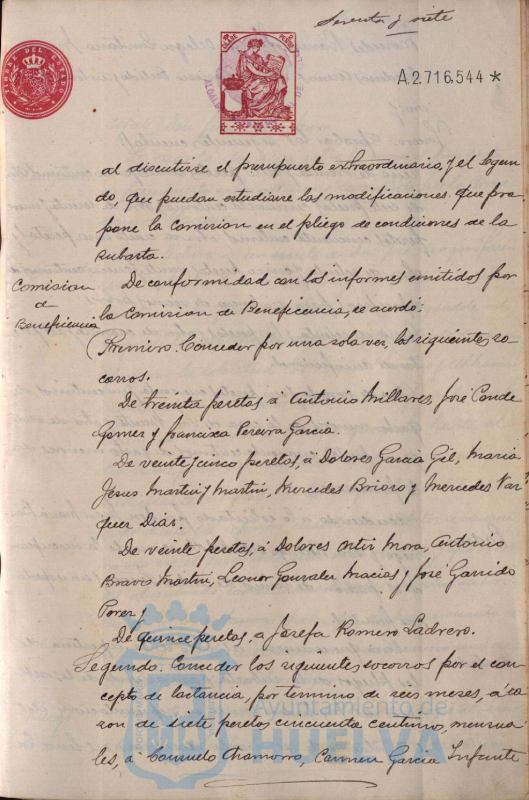 Sesenta y siete
A.2716.544 *
al discutirse el presupuesto extraordinario, y el segun-
do, que puedan estudiarse las modificaciones que pro-
pone la Comision en el pliego de condiciones de la
subasta.
Comision
de
Beneficencia
De conformidad con los informes emitidos por
la Comision de Beneficencia, se acordó:
Primero. Conceder por una sola vez, los siguientes so-
corros.
De treinta pesetas á Antonio Millares, José Conde
Gomez y Francisca Pereira Garcia.
De veinte y cinco pesetas, á Dolores Garcia Gil, Maria
Jesus Martin y Martin, Mercedes Brioso y Mercedes Vaz-
quez Diaz.
De veinte pesetas, á Dolores Ortiz Mora, Antonio
Bravo Martin, Leonor Gonzalez Macias y José Garrido
Perez y
De quince pesetas, a Josefa Romero Ladrero.
Segundo. Conceder los siguientes socorros por el con-
cepto de lactancia, por termino de seis meses, á ra-
zon de siete pesetas cincuenta centimos, mensua-
les, a Consuelo Chamorro, Carmen Garcia Infante
Ayuntamiento de
HUELVA